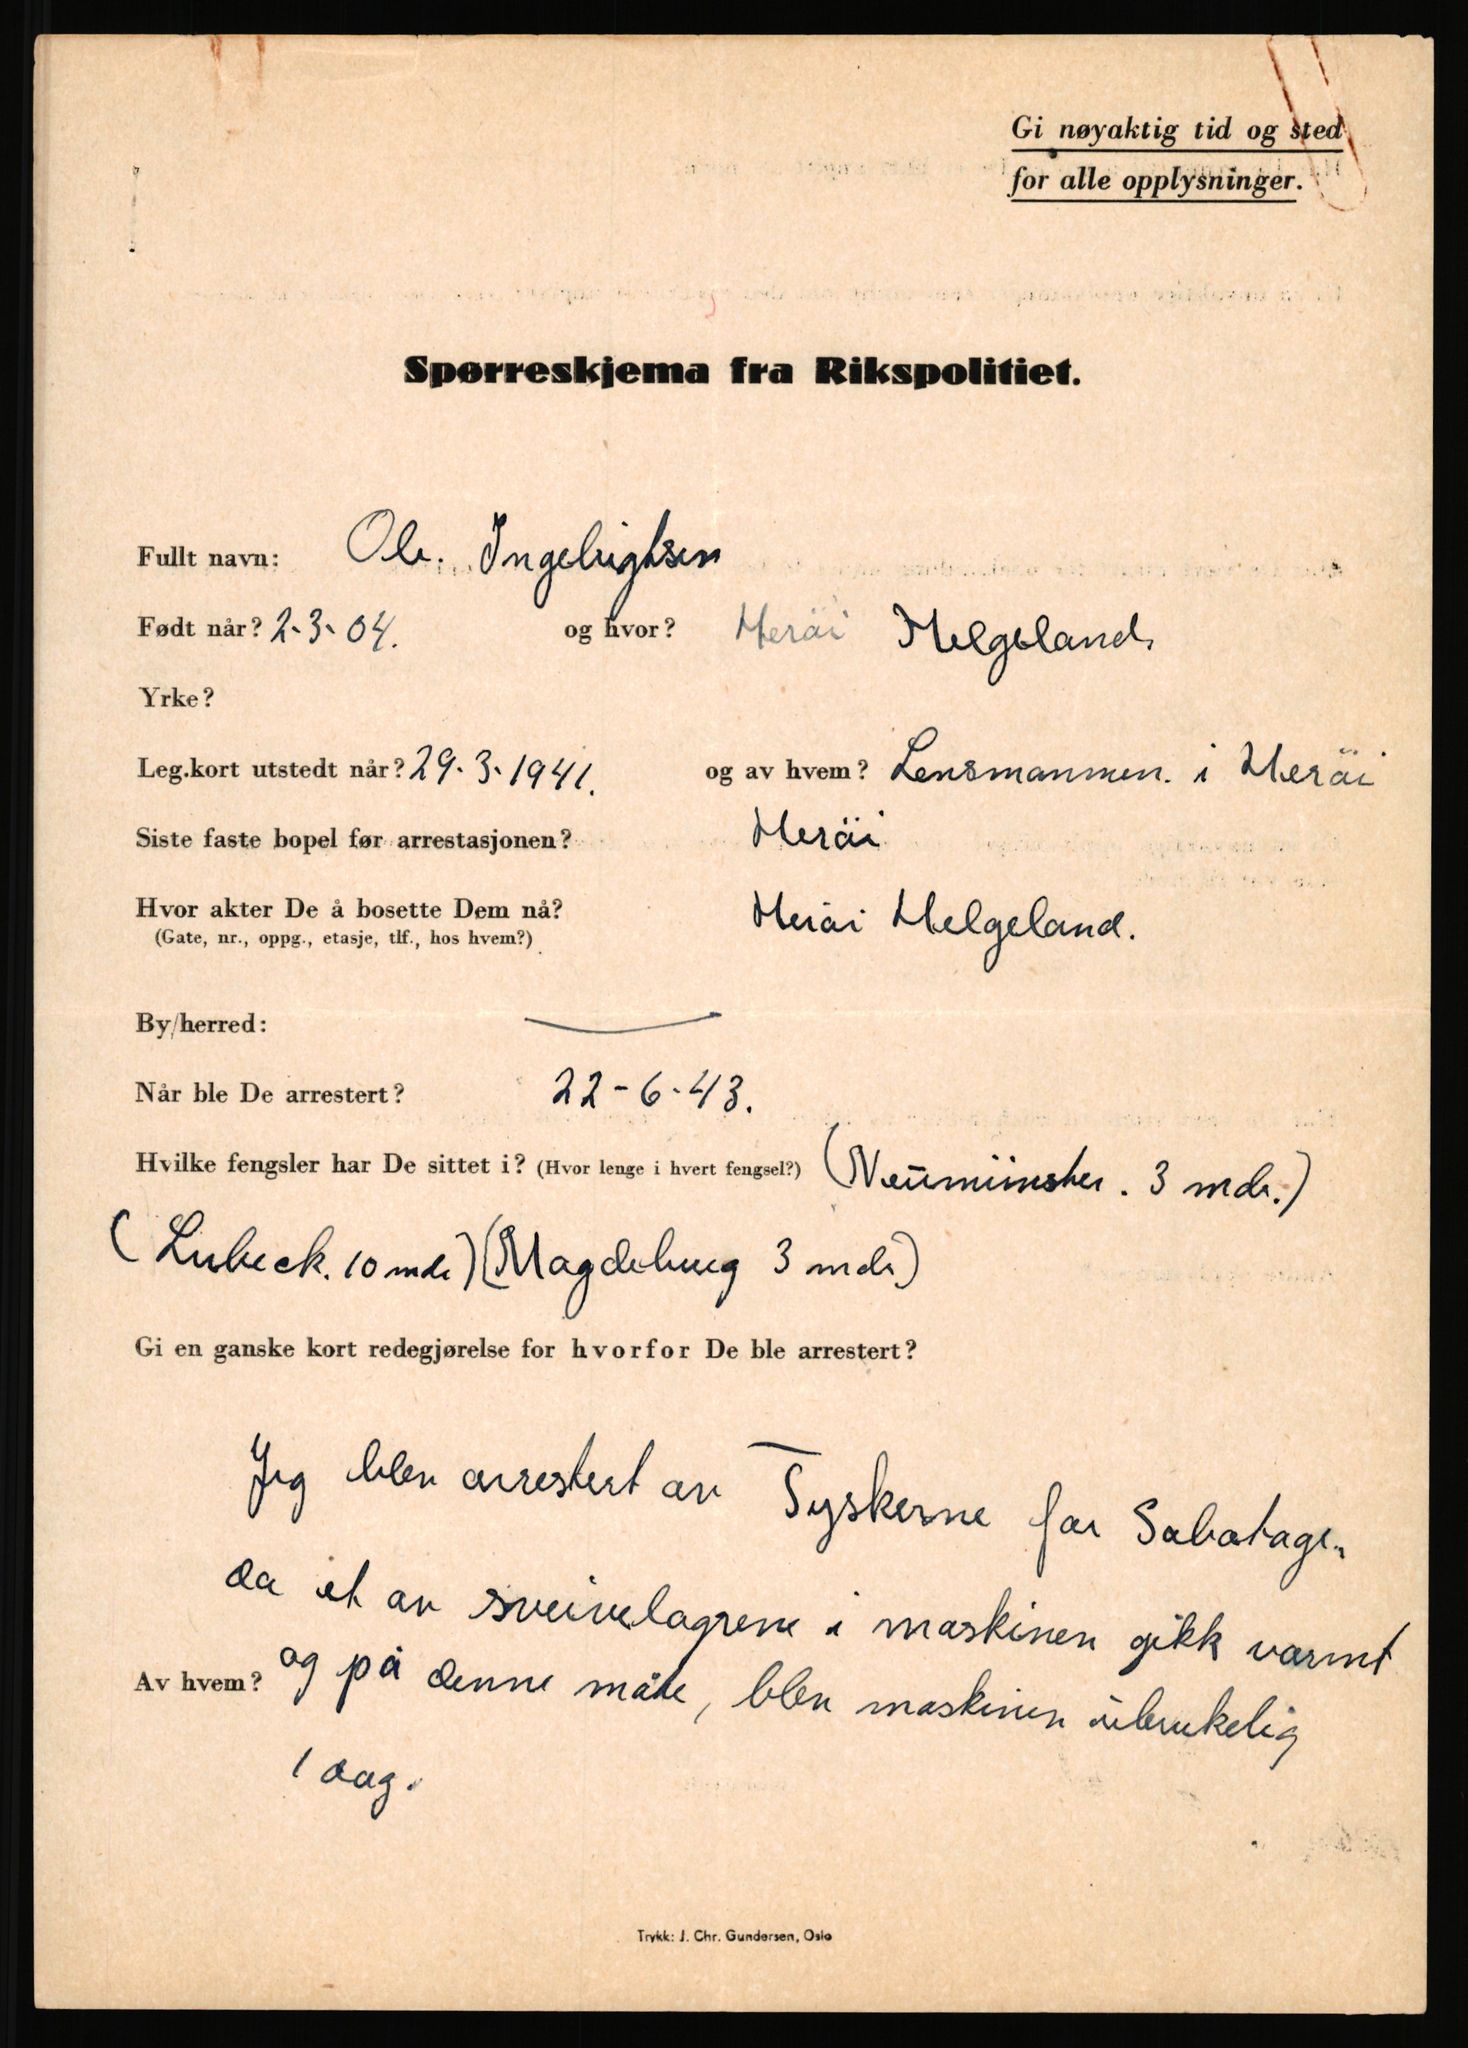 Gi nøyaktig tid og sted
for alle opplysninger.
Spørreskjema fra Rikspolitiet.
Fullt navn: Ole. Ingebrigtsen
Født når? 2-3-04. og hvor? Heröi Helgeland.
Yrke?
Leg.kort utstedt når? 29-3-1941. og av hvem? Lensmannen. i Heröi
Siste faste bopel før arrestasjonen? Heröi
Hvor akter De å bosette Dem nå? Heröi Helgeland.
(Gate, nr., oppg., etasje, tlf., hos hvem?)
By/herred:
Når ble De arrestert? 22-6-43.
Hvilke fengsler har De sittet i? (Hvor lenge i hvert fengsel?) (Neumünster. 3 mdr.)
(Lubeck. 10 mdr) (Magdeburg 3 mdr)
Gi en ganske kort redegjørelse for hvorfor De ble arrestert?
Jeg blev arrestert av Tyskerne for Sabotage.
da et av sveivelagrene i maskinen gikk varmt
Av hvem? og på denne måte, blev maskinen übrukelig
1 dag.
Trykk: J. Chr. Gundersen, Oslo